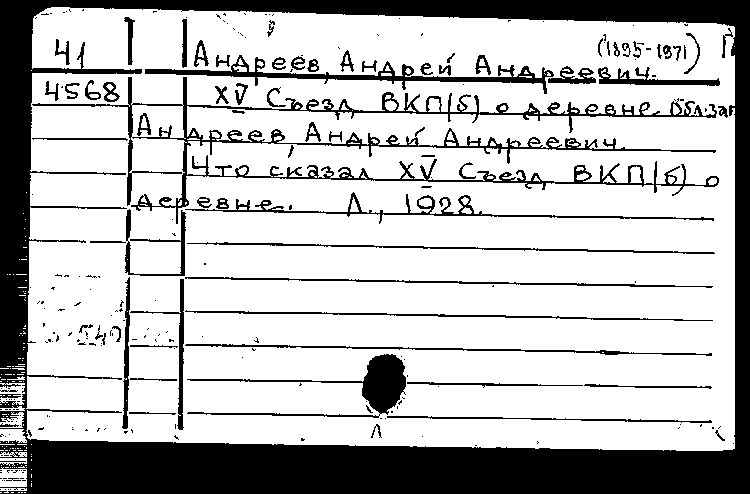 41 Андреев, Андрей Андреевич. (1895-1971)
4568 XV Съезд ВКП(б) о деревне. Обл. заг.
Андреев, Андрей Андреевич.
Что сказал XV Съезд ВКП(б) о
деревне. Л., 1928.
540
Л